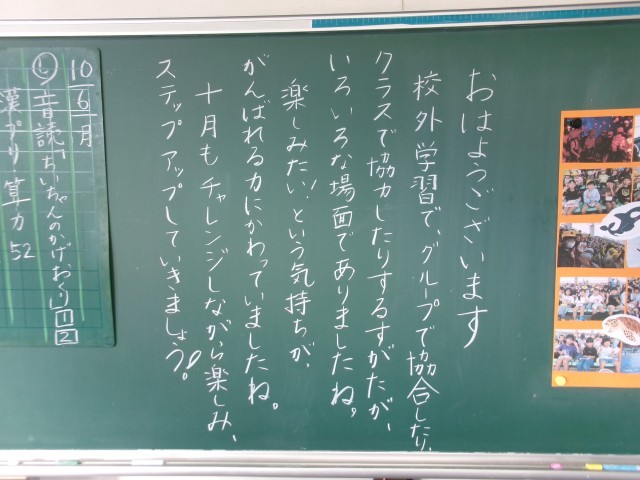 おはようございます
校外学習で、グループで協合したり、
クラスで協力したりするすがたが、
いろいろな場面でありましたね。
楽しみたい!という気持ちが、
がんばれる力にかわっていましたね。
十月もチャレンジしながら楽しみ、
ステップアップしていきましょう!。
10
6
月
し 音読「ちいちゃんのかげおくり」1 2
漢プリ 算力 52